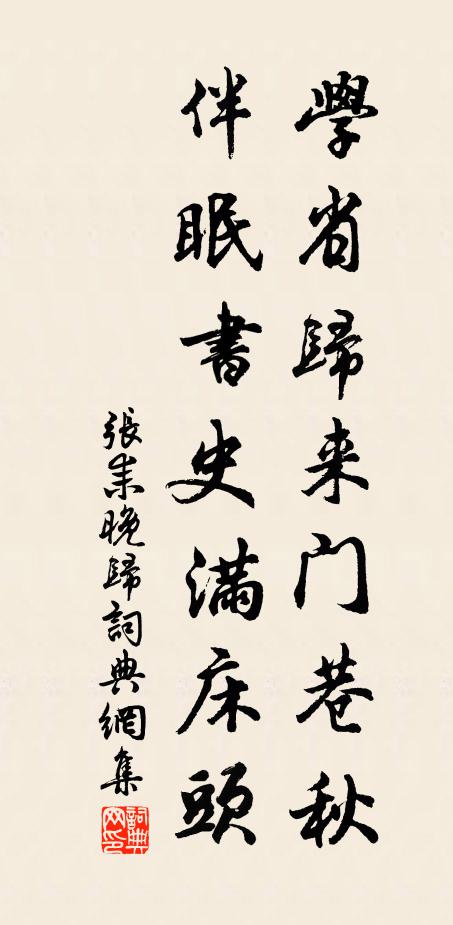 學省歸来門巷秋
伴眠書史满床頭
張耒晚歸詞典網集
詞典网印